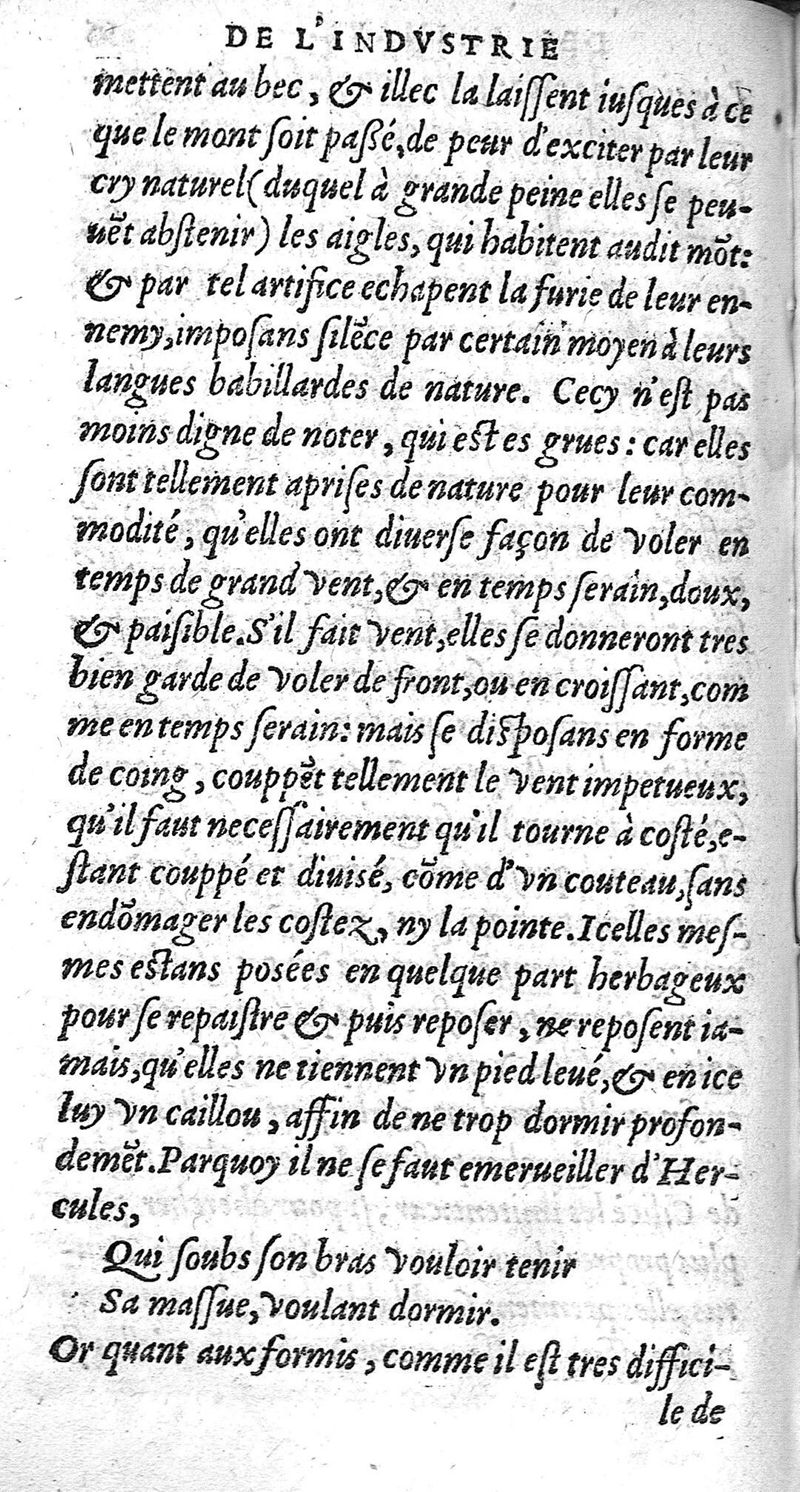 DE L'INDVSTRIE
mettent au bec, & illec la laiſſent iuſques à ce
que le mont ſoit paßé, de peur d'exciter par leur
cry naturel (duquel à grande peine elles ſe peu-
uẽt abſtenir) les aigles, qui habitent audit mõt:
& par tel artifice echapent la furie de leur en-
nemy, impoſans ſilẽce par certain moyen à leurs
langues babillardes de nature. Cecy n'eſt pas
moins digne de noter, qui eſt es grues: car elles
ſont tellement apriſes de nature pour leur com-
modité, qu'elles ont diuerſe façon de voler en
temps de grand vent, & en temps ſerain, doux,
& paiſible. S'il fait vent, elles ſe donneront tres
bien garde de voler de front, ou en croiſſant, com
me en temps ſerain: mais ſe diſpoſans en forme
de coing, couppẽt tellement le vent impetueux,
qu'il faut neceſſairement qu'il tourne à coſté, e-
ſtant couppé et diuisé, cõme d'vn couteau, ſans
endõmager les coſtez, ny la pointe. Icelles meſ-
mes eſtans posées en quelque part herbageux
pour ſe repaiſtre & puis repoſer, ne repoſent ia-
mais, qu'elles ne tiennent vn pied leué, & en ice
luy vn caillou, affin de ne trop dormir profon-
demẽt. Parquoy il ne ſe faut emerueiller d'Her-
cules,
Qui ſoubs ſon bras vouloir tenir
Sa maſſue, voulant dormir.
Or quant aux formis, comme il eſt tres diffici-
le de